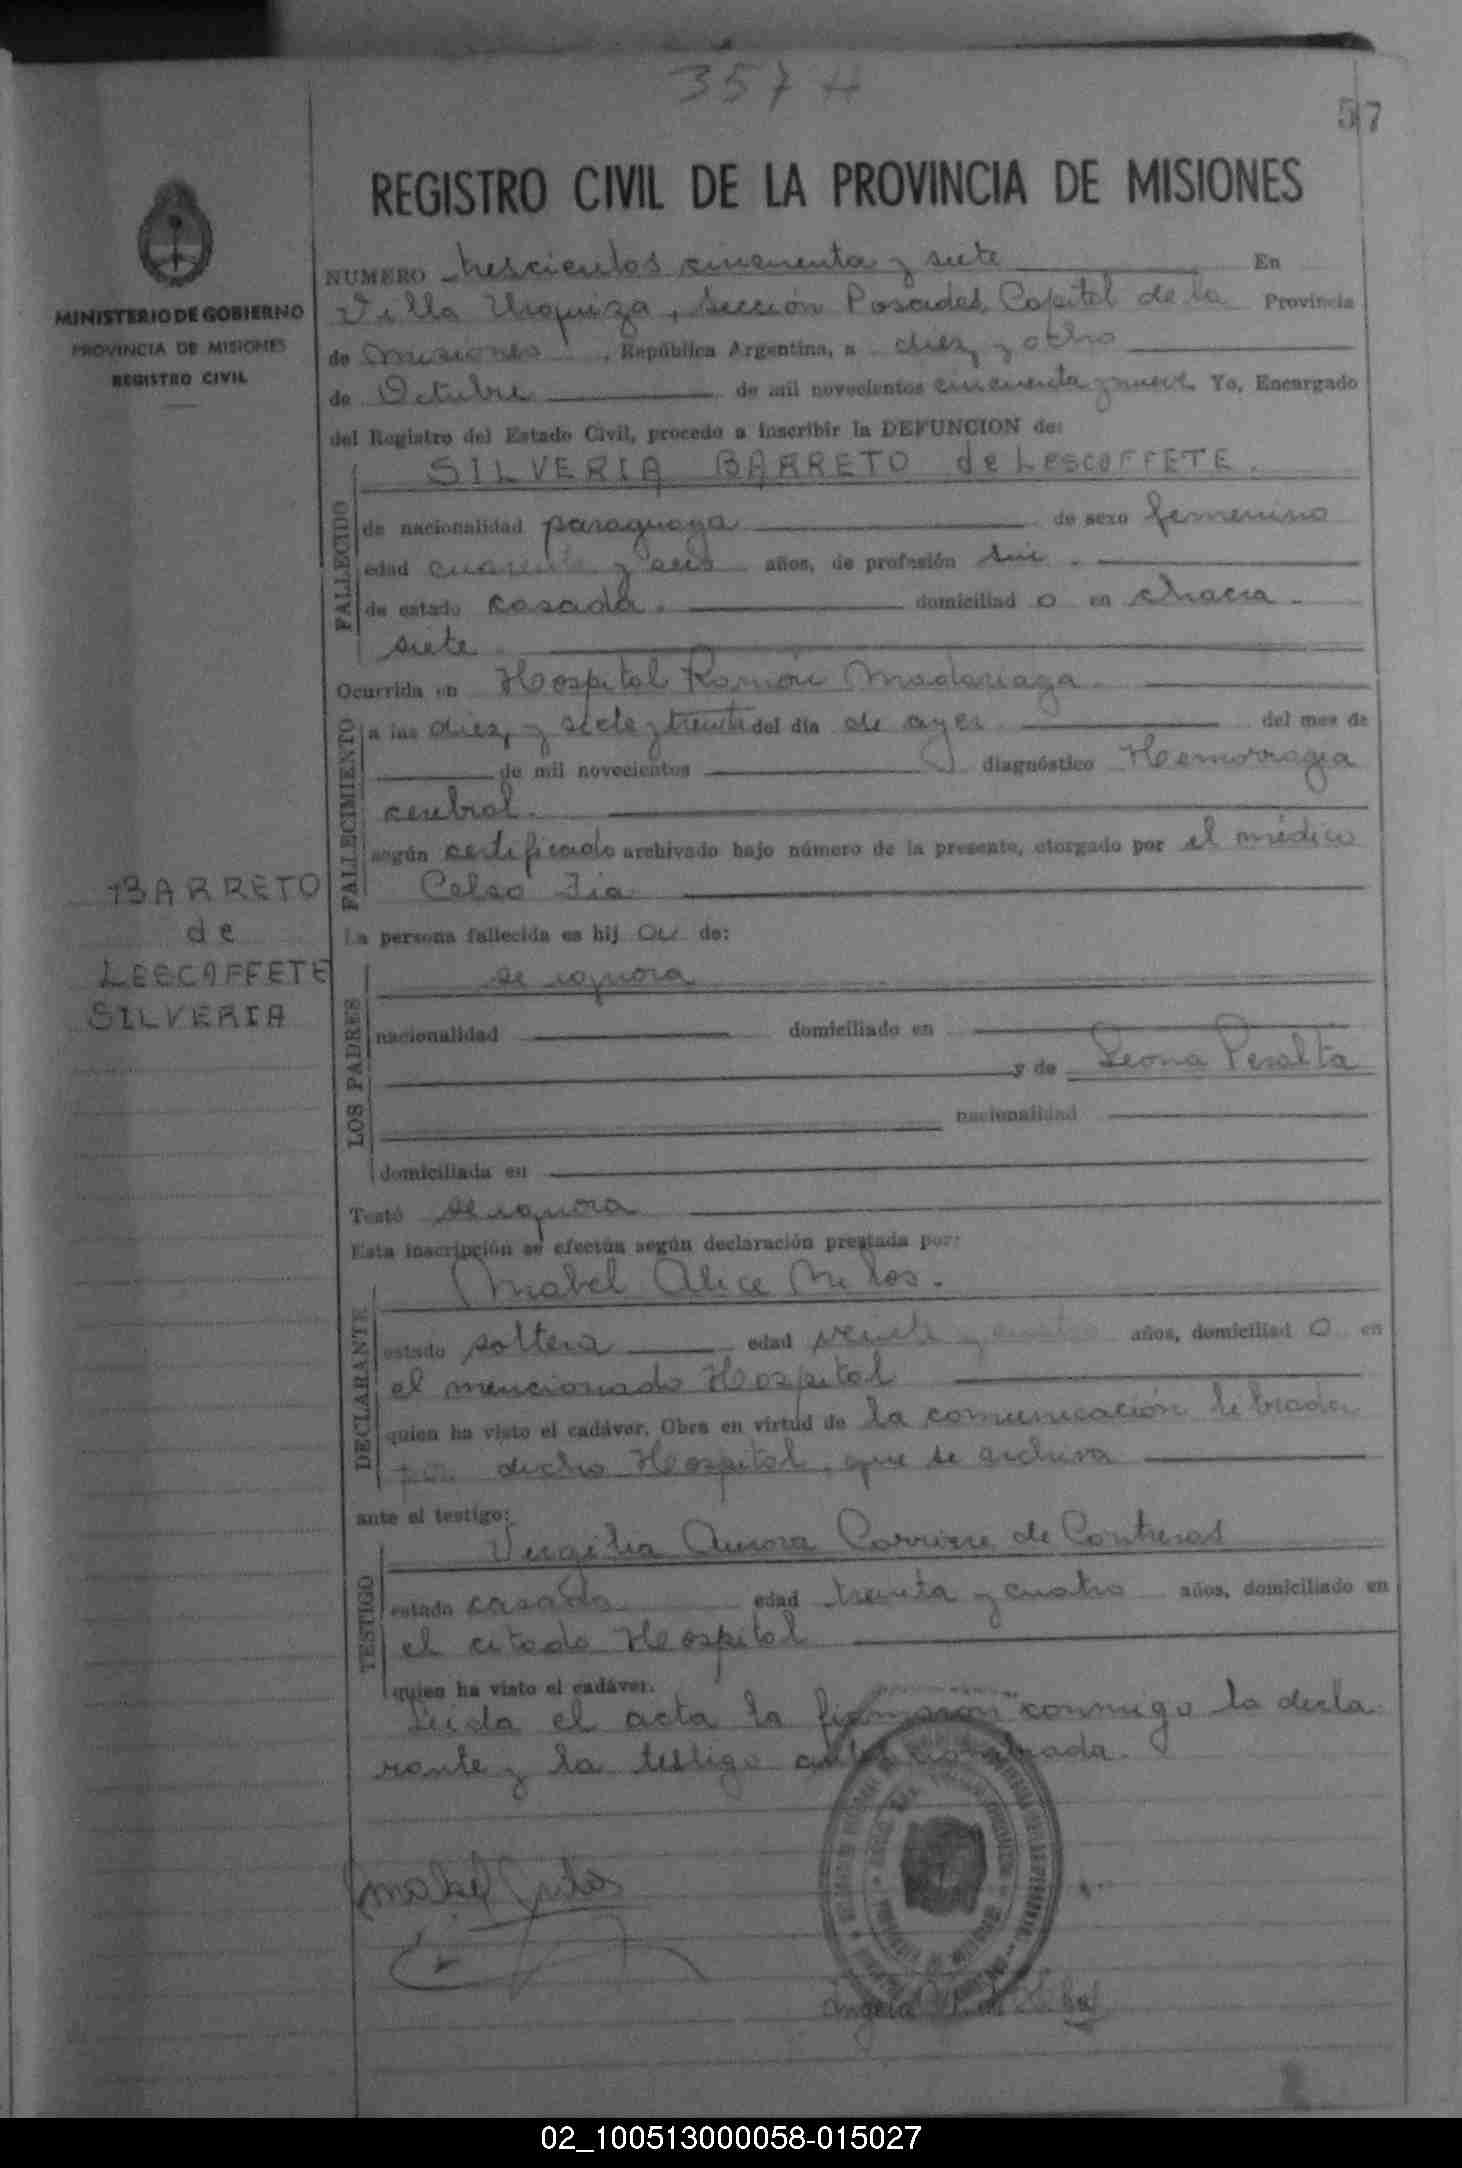 357 H
57
REGISTRO CIVIL DE LA PROVINCIA DE MISIONES
MINISTERIO DE GOBIERNO
PROVINCIA DE MISIONES
REGISTRO CIVIL
NUMERO trescientos cincuenta y siete En
Villa Urquiza, Sección Posadas, Capital de la Provincia
de Misiones, República Argentina, a diez y ocho
de Octubre de mil novecientos cincuenta y nueve Yo, Encargado
del Registro del Estado Civil, procedo a inscribir la DEFUNCION de:
FALLECIDO
SILVERIA BARRETO de LESCOFFETE.
de nacionalidad paraguaya de sexo femenino
edad cuarenta y seis años, de profesión sin.
de estado casada. domiciliad o en chacra
siete
Ocurrida en Hospital Ramón Madariaga
FALLECIMIENTO
a las diez y siete y treinta del día de ayer del mes de
de mil novecientos diagnóstico Hemorragia
cerebral.
según certificado archivado bajo número de la presente, otorgado por el médico
Celso
BARRETO
de
LESCOFFETE
SILVERIA
La persona fallecida es hij a de:
LOS PADRES
se ignora
nacionalidad domiciliado en
y de Leona Peralta
nacionalidad
domiciliada en
Testó se ignora
Esta inscripción se efectúa según declaración prestada por:
DECLARANTE
Mabel Alice
estado soltera edad veinte y cuatro años, domiciliad o en
el mencionado Hospital
quien ha visto el cadáver. Obra en virtud de la comunicación librada
por dicho Hospital, que se archiva
ante el testigo:
TESTIGO
Virgilia Aurora de Contreras
estado casada edad treinta y cuatro años, domiciliado en
el citado Hospital
quien ha visto el cadáver.
Leída el acta la firmaron conmigo la decla
rante y la testigo antes nombrada.
Mabel
Angela
02_100513000058-015027